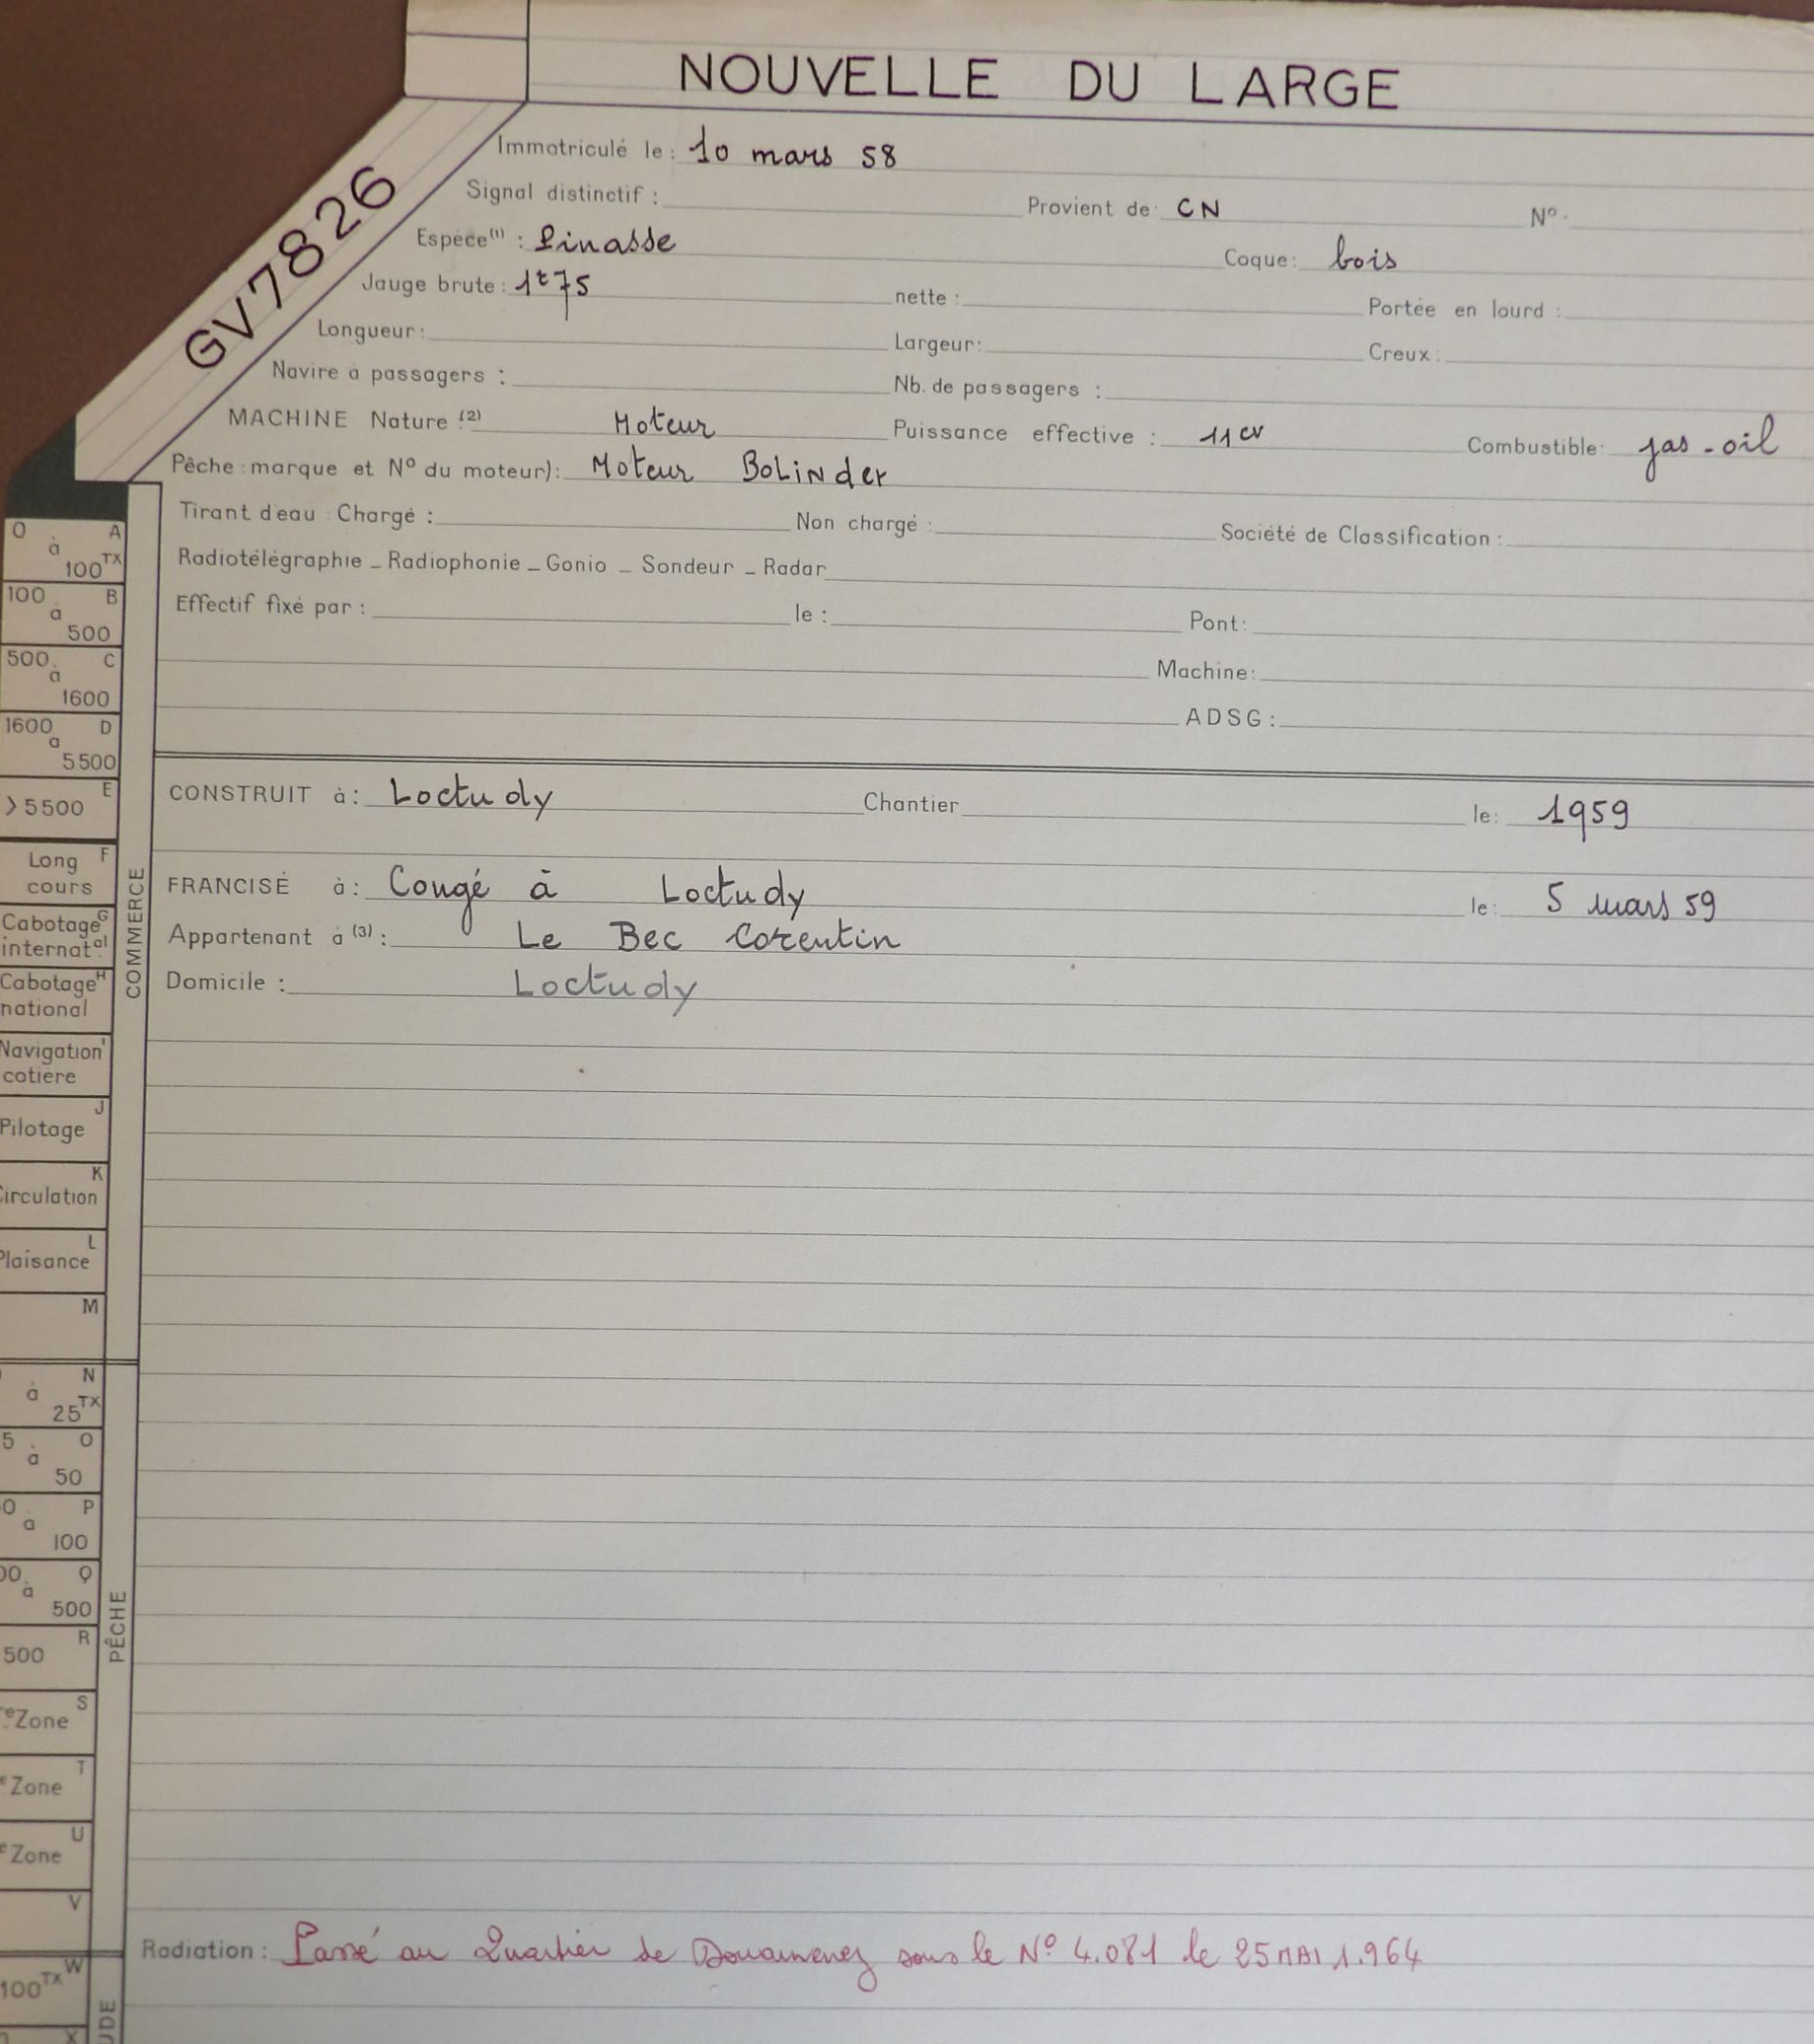 NOUVELLE DU LARGE
GV7826
Immatriculé le: 10 mars 58
Signal distinctif : Provient de: CN N°
Espèce(1) : Pinasse Coque: bois
Jauge brute : 1t75 nette : Portée en lourd :
Longueur: Largeur: Creux:
Navire à passagers : Nb. de passagers :
MACHINE Nature:(2) Moteur Puissance effective : 11 cv Combustible: gas-oil
Pêche: marque et N° du moteur): Moteur BoLiNder
Tirant d'eau : Chargé : Non chargé : Société de Classification :
Radiotélégraphie - Radiophonie - Gonio - Sondeur - Radar
Effectif fixé par : le : Pont:
Machine:
ADSG :
CONSTRUIT à: Loctudy Chantier le: 1959
FRANCISÉ à: Congé à Loctudy le: 5 mars 59
Appartenant à (3) : Le Bec Corentin
Domicile : Loctudy
Radiation : Passé au Quartier de Douarnenez sous le N° 4.081 le 25 MAI 1.964
COMMERCE
0 à 100TX A
100 à 500 B
500 à 1600 C
1600 à 5500 D
>5500 E
Long cours F
Cabotage internatal G
Cabotage national H
Navigation cotière I
Pilotage J
Circulation K
Plaisance L
M
PÊCHE
à 25TX N
5 à 50 O
0 à 100 P
00 à 500 Q
500 R
Zone S
Zone T
Zone U
V
100TX W
UDE
X